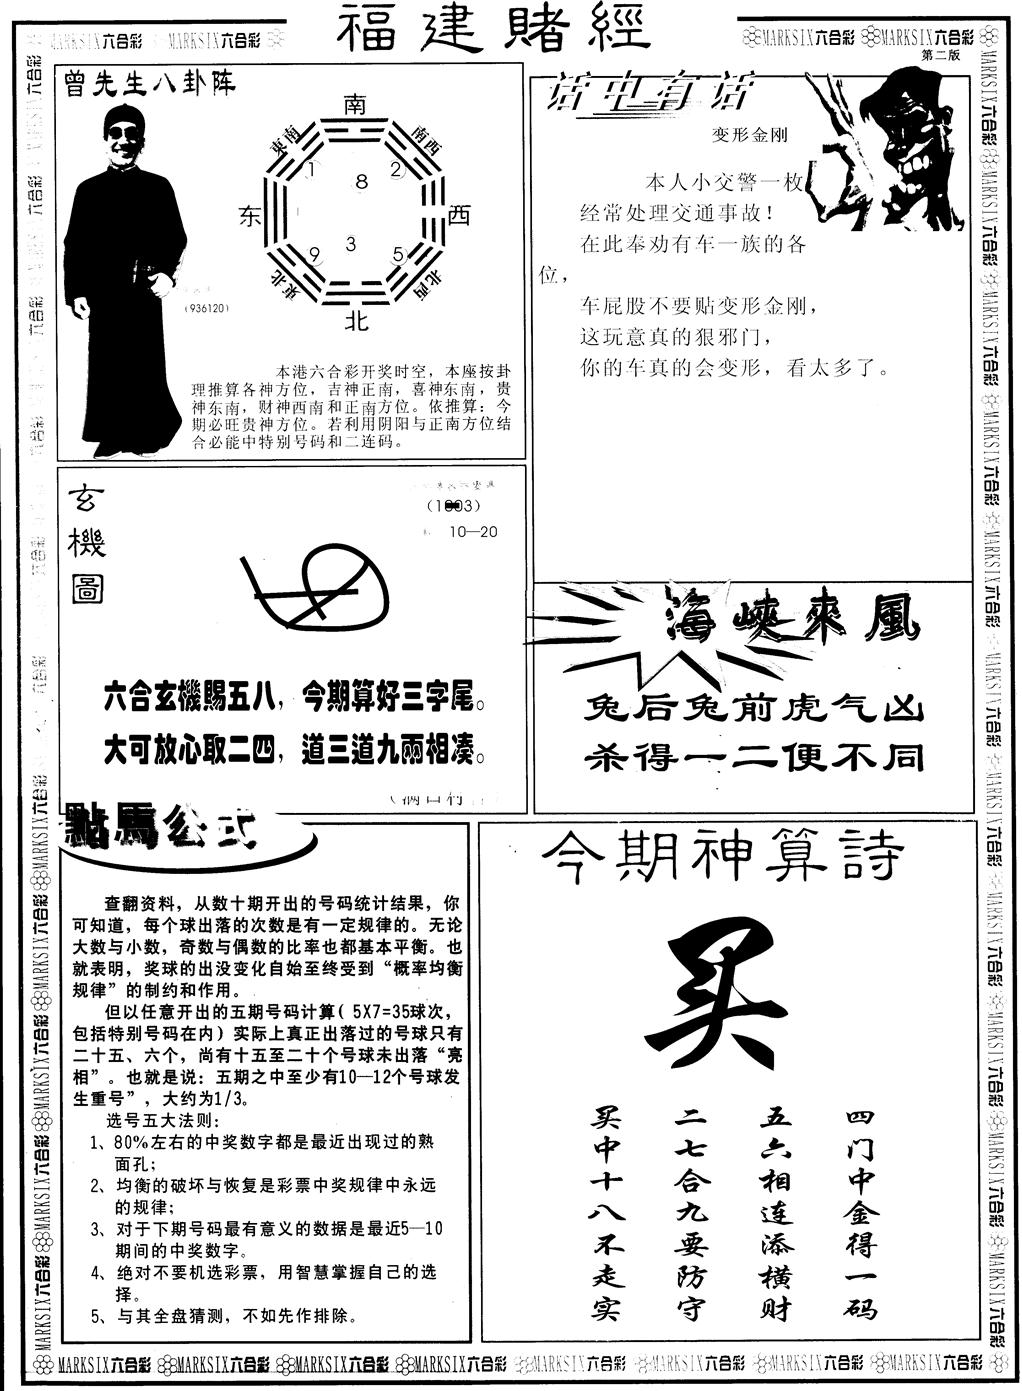 福建賭經
MARKSIX六合彩 MARKSIX六合彩
MARKSIX六合彩 MARKSIX六合彩
第二版
曾先生八卦阵
南
東南 南西
1 8 2
东 西
9 3 5
東北 北西
北
(936120)
本港六合彩开奖时空，本座按卦
理推算各神方位，吉神正南，喜神东南，贵
神东南，财神西南和正南方位。依推算：今
期必旺贵神方位。若利用阴阳与正南方位结
合必能中特别号码和二连码。
话中有话
变形金刚
本人小交警一枚
经常处理交通事故！
在此奉劝有车一族的各
位，
车屁股不要贴变形金刚，
这玩意真的狠邪门，
你的车真的会变形，看太多了。
玄機圖
10—20
六合玄機賜五八，今期算好三字尾。
大可放心取二四，道三道九兩相凑。
海峽來風
兔后兔前虎气凶
杀得一二便不同
點馬公式
查翻资料，从数十期开出的号码统计结果，你
可知道，每个球出落的次数是有一定规律的。无论
大数与小数，奇数与偶数的比率也都基本平衡。也
就表明，奖球的出没变化自始至终受到“概率均衡
规律”的制约和作用。
但以任意开出的五期号码计算( 5X7=35球次，
包括特别号码在内）实际上真正出落过的号球只有
二十五、六个，尚有十五至二十个号球未出落“亮
相”。也就是说：五期之中至少有10—12个号球发
生重号”，大约为1/3。
选号五大法则：
1、80%左右的中奖数字都是最近出现过的熟
面孔；
2、均衡的破坏与恢复是彩票中奖规律中永远
的规律；
3、对于下期号码最有意义的数据是最近5—10
期间的中奖数字。
4、绝对不要机选彩票，用智慧掌握自己的选
择。
5、与其全盘猜测，不如先作排除。
今期神算詩
买
四门中金得一码
五六相连添横财
二七合九要防守
买中十八不走实
MARKSIX六合彩 MARKSIX六合彩 MARKSIX六合彩 MARKSIX六合彩 MARKSIX六合彩 MARKSIX六合彩 MARKSIX六合彩 MARKSIX六合彩